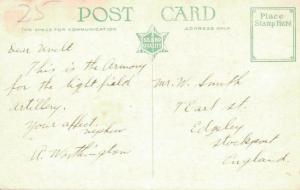 25
POST CARD
THIS SPACE FOR COMMUNICATION
ADDRESS ONLY
Place
Stamp Here
Dear Uncle
This is the Armory
for the light field
artillery.
Your affect.
nephew
A. Worthington
Mr. W. Smith
7 East st.
Edgeley
Stockport
England.